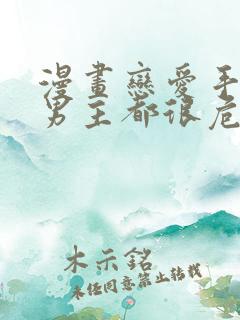 漫畫戀愛手
男主都很危
木示銘
未經同意禁止轉載